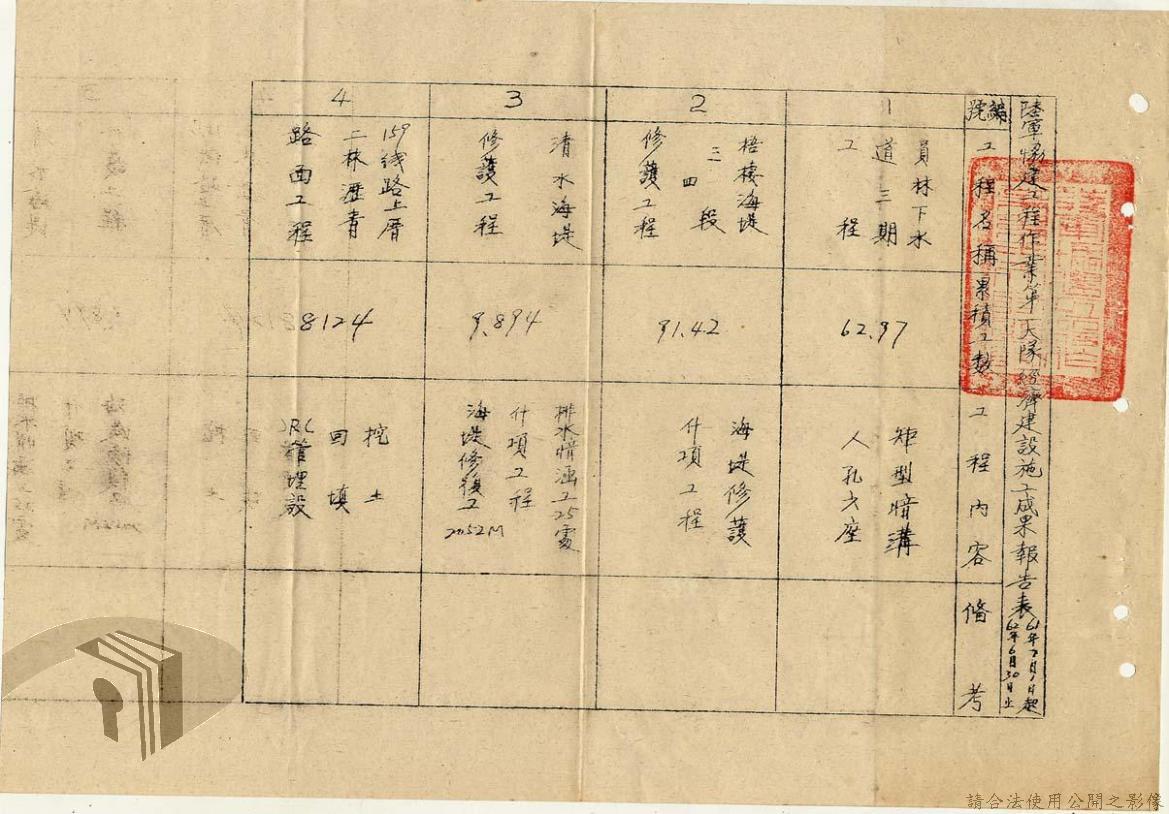 陸軍協建工程作業第一大隊經濟建設施工成果報告表
61年7月1日起
62年6月30日止
編號
工程名稱
累積工數
工程內容
備考
1
員林下水
道三期
工程
62.97
矩型暗溝
人孔六座
2
梧棲海堤
三四段
修護工程
91.42
海堤修護
什項工程
3
清水海堤
修護工程
9.894
排水暗涵工25處
什項工程
海堤修復工
4
159线路上厝
二林瀝青
路面工程
8124
挖土
回填
RC管埋設
請合法使用公開之影像